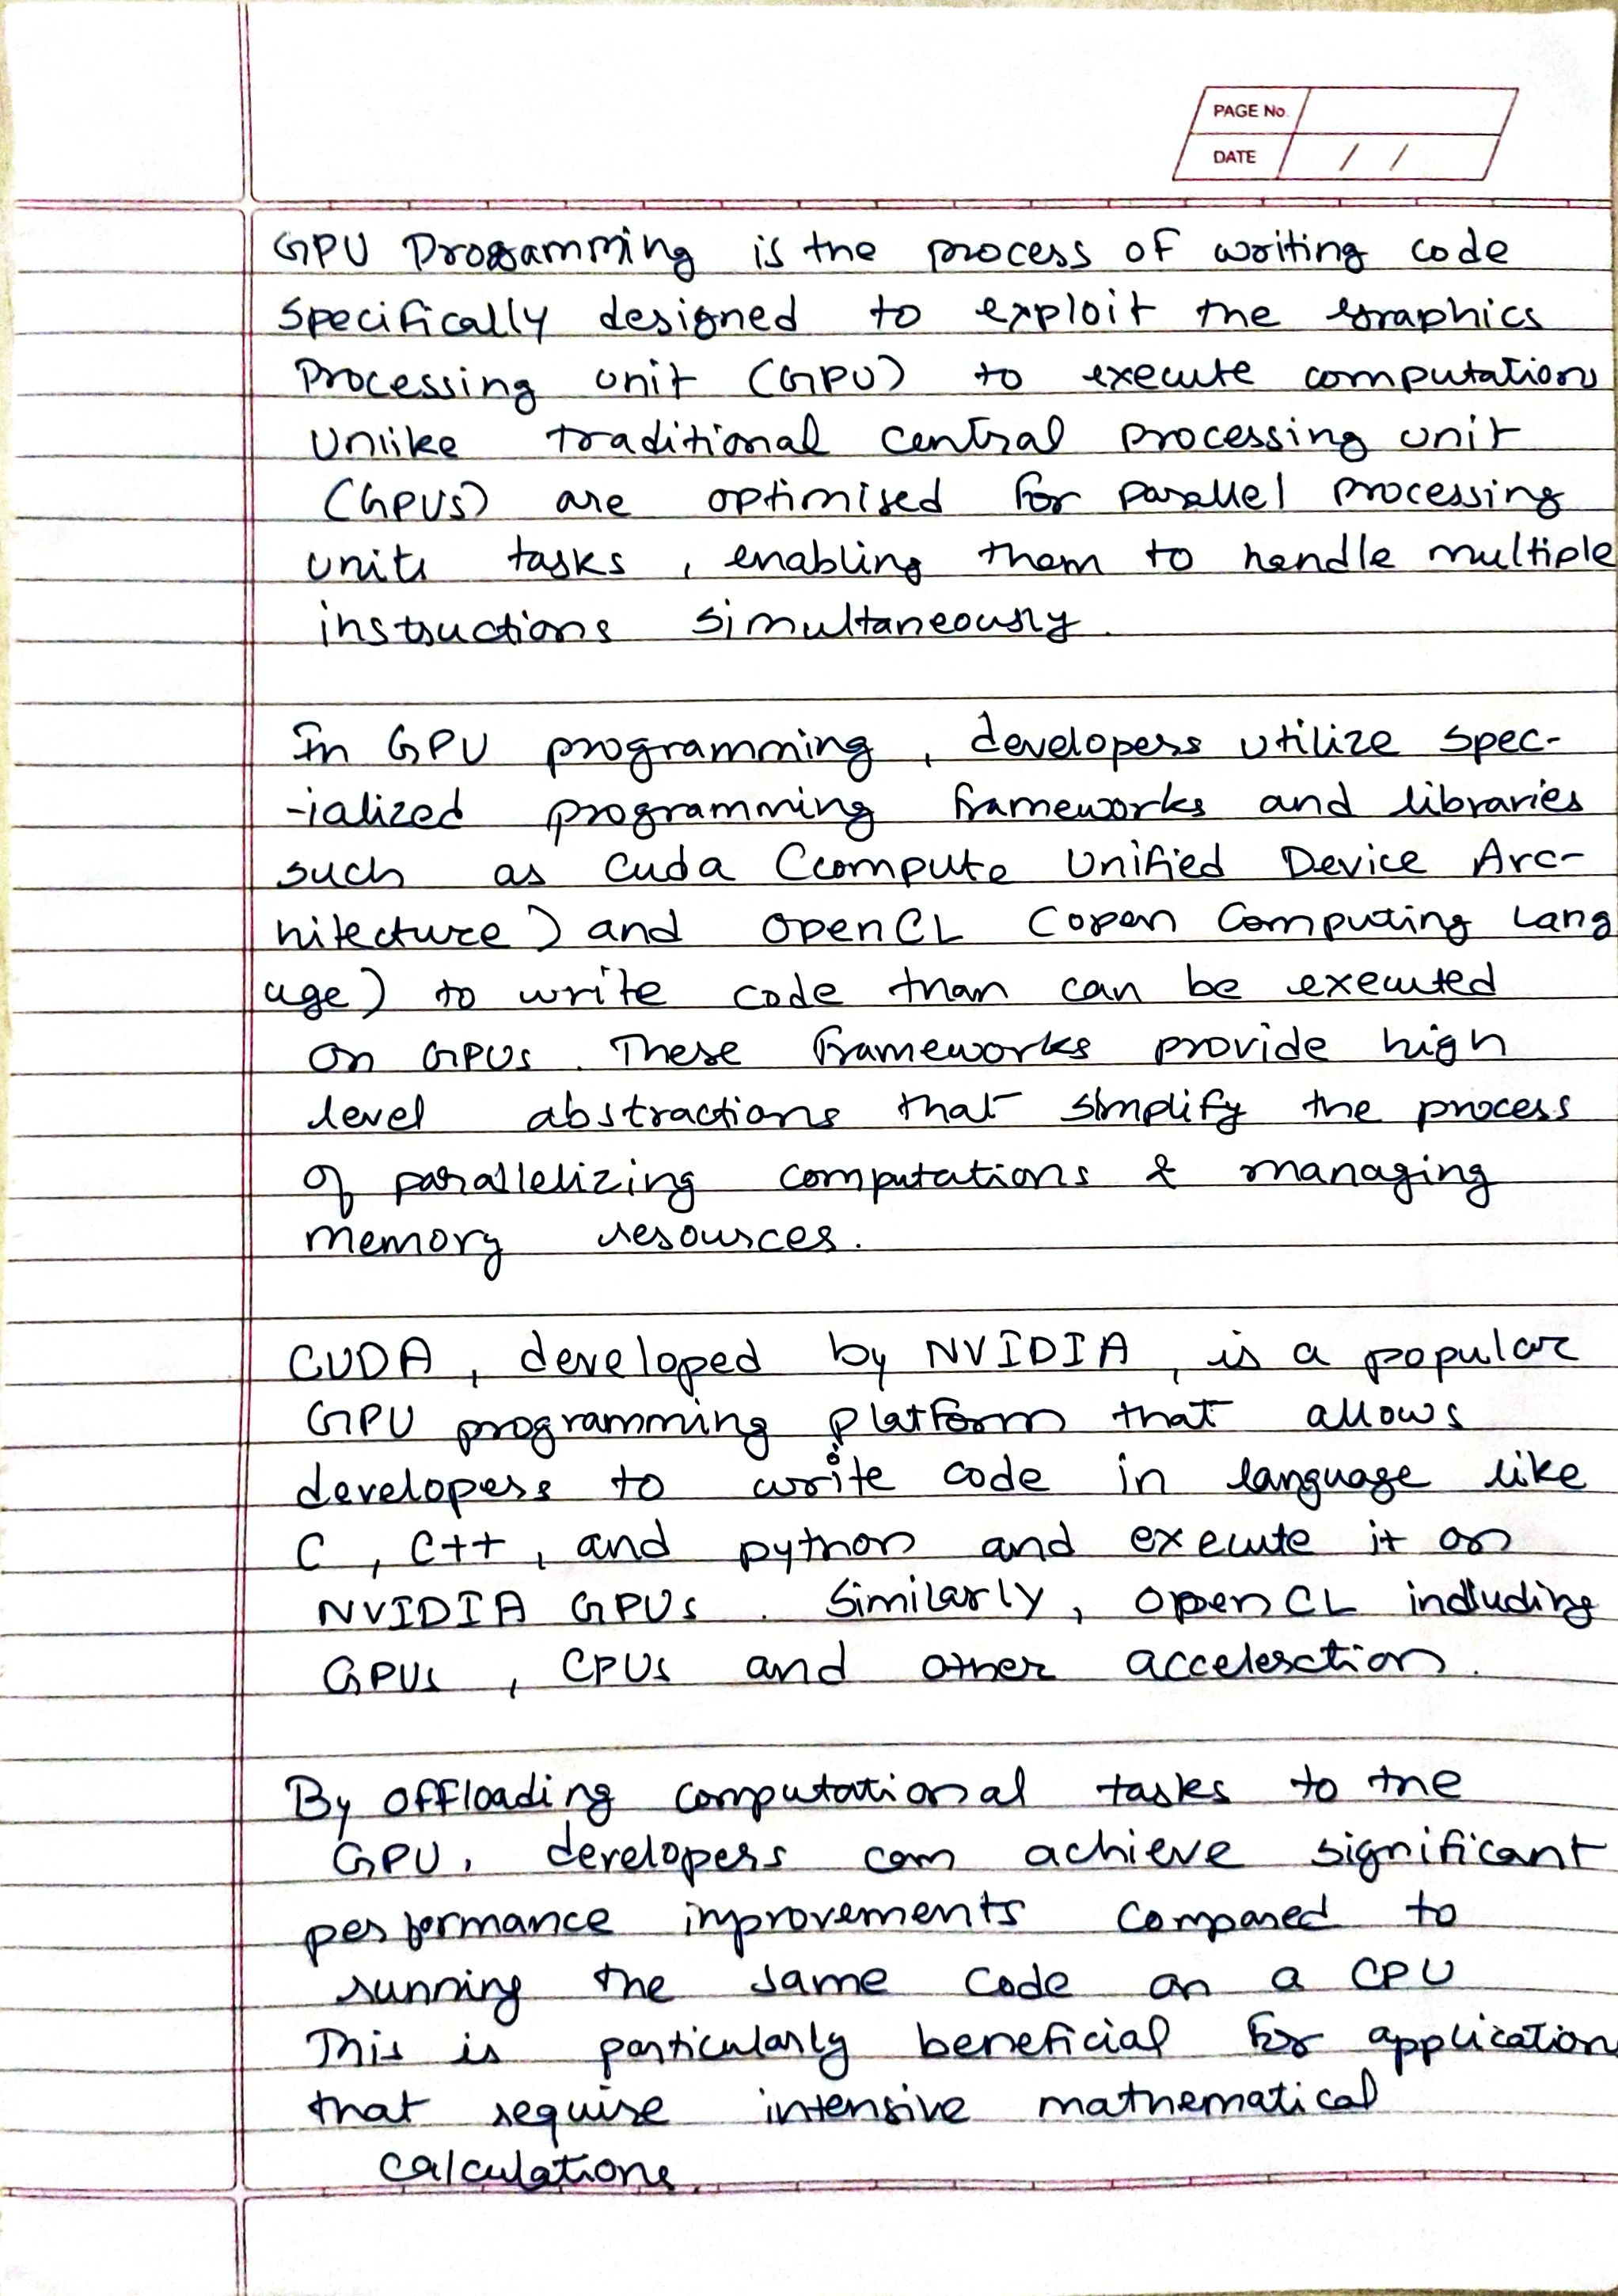 PAGE No.
DATE / /
GPU Programming is the process of writing code
specifically designed to exploit the Graphics
Processing unit (GPU) to execute computations
Unlike traditional central processing unit
(GPUs) are optimised for parallel processing
units tasks , enabling them to handle multiple
instructions simultaneously.
In GPU programming , developers utilize spec-
-ialized programming frameworks and libraries
such as Cuda (compute Unified Device Arc-
hitecture) and OpenCL (open Computing Lang
uge) to write code than can be executed
on GPUs. These frameworks provide high
level abstractions that simplify the process
of parallelizing computations & managing
memory resources.
CUDA, developed by NVIDIA, is a popular
GPU programming platform that allows
developers to write code in language like
C, C++, and python and execute it on
NVIDIA GPUs. Similarly, OpenCL including
GPUs, CPUs and other acceleration.
By offloading computational tasks to the
GPU, developers can achieve significant
performance improvements compared to
running the same code on a CPU
This is particularly beneficial for application
that require intensive mathematical
calculations.